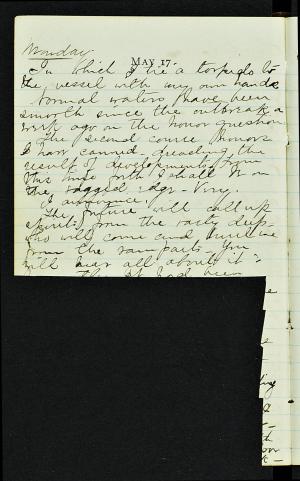 Monday.
MAY 17.
In which I tie a torpedo to
the vessel with my own hands
Normal waters have been
smooth since the outbreak a
week ago on the honor question
The second course honors
I have canned, pending the
result of developments, from
this time forth I shall be on
the ragged edge - Very.
I announce.
The future will call up
spirits from the vasty deep
who will come and thunder
from the ramparts. You
will hear all about it -
had been